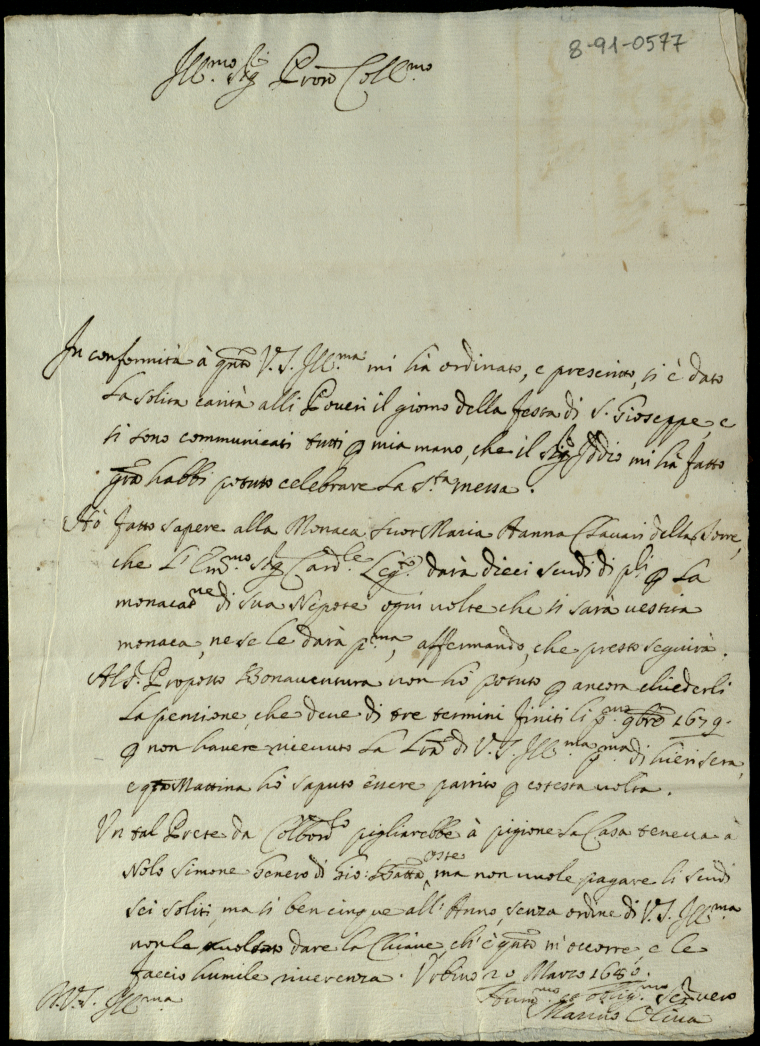 8-91-0577
Ill.mo Sig Pron Coll.mo
In conformità à qnto V.S. Ill.ma mi hà ordinato, e prescritto, si è dato
la solita carità alli Poveri il giorno della festa di S. Gioseppe, e
si sono communicati tutti p mia mano, che il Sig Iddio mi hà fatto
gra habbi potuto celebrare la S.ta messa.
Hò fatto sapere alla Monaca Suor Maria Hanna Clavari della Torre,
che l'Em.mo Sig Card.le Leg.o darà dieci scudi di pli p la
monacaone di sua Nipote ogni volte che si sarà vestita
monaca, ne se le darà p.ma, affermando, che presto seguirà.
Al S. Proposto Bonaventura non hò potuto p ancora chiederli
la pensione, che deve di tre termini finiti li p.mo 9bre 1679.
p non havere ricevuto la Lra di V.S. Ill.ma p.ma di hieri sera,
e qta Mattina hò saputo essere partito p cotesta volta.
Un tal Prete da Colbordo pigliarebbe à pigione la Casa teneva à
Nolo Simone Genero di Gio: Batta oste, ma non vuole pagare li scudi
sei soliti, ma si ben cinque all'Anno, senza ordine di V.S. Ill.ma
non le dare la Chiave, ch'è qnto m'occorre, e le
faccio humile riverenza. Urbino 20 Marzo 1680.
D.V.S. Ill.ma
Hum.mo et oblig.mo Ser.re vero
Marcus Oliva